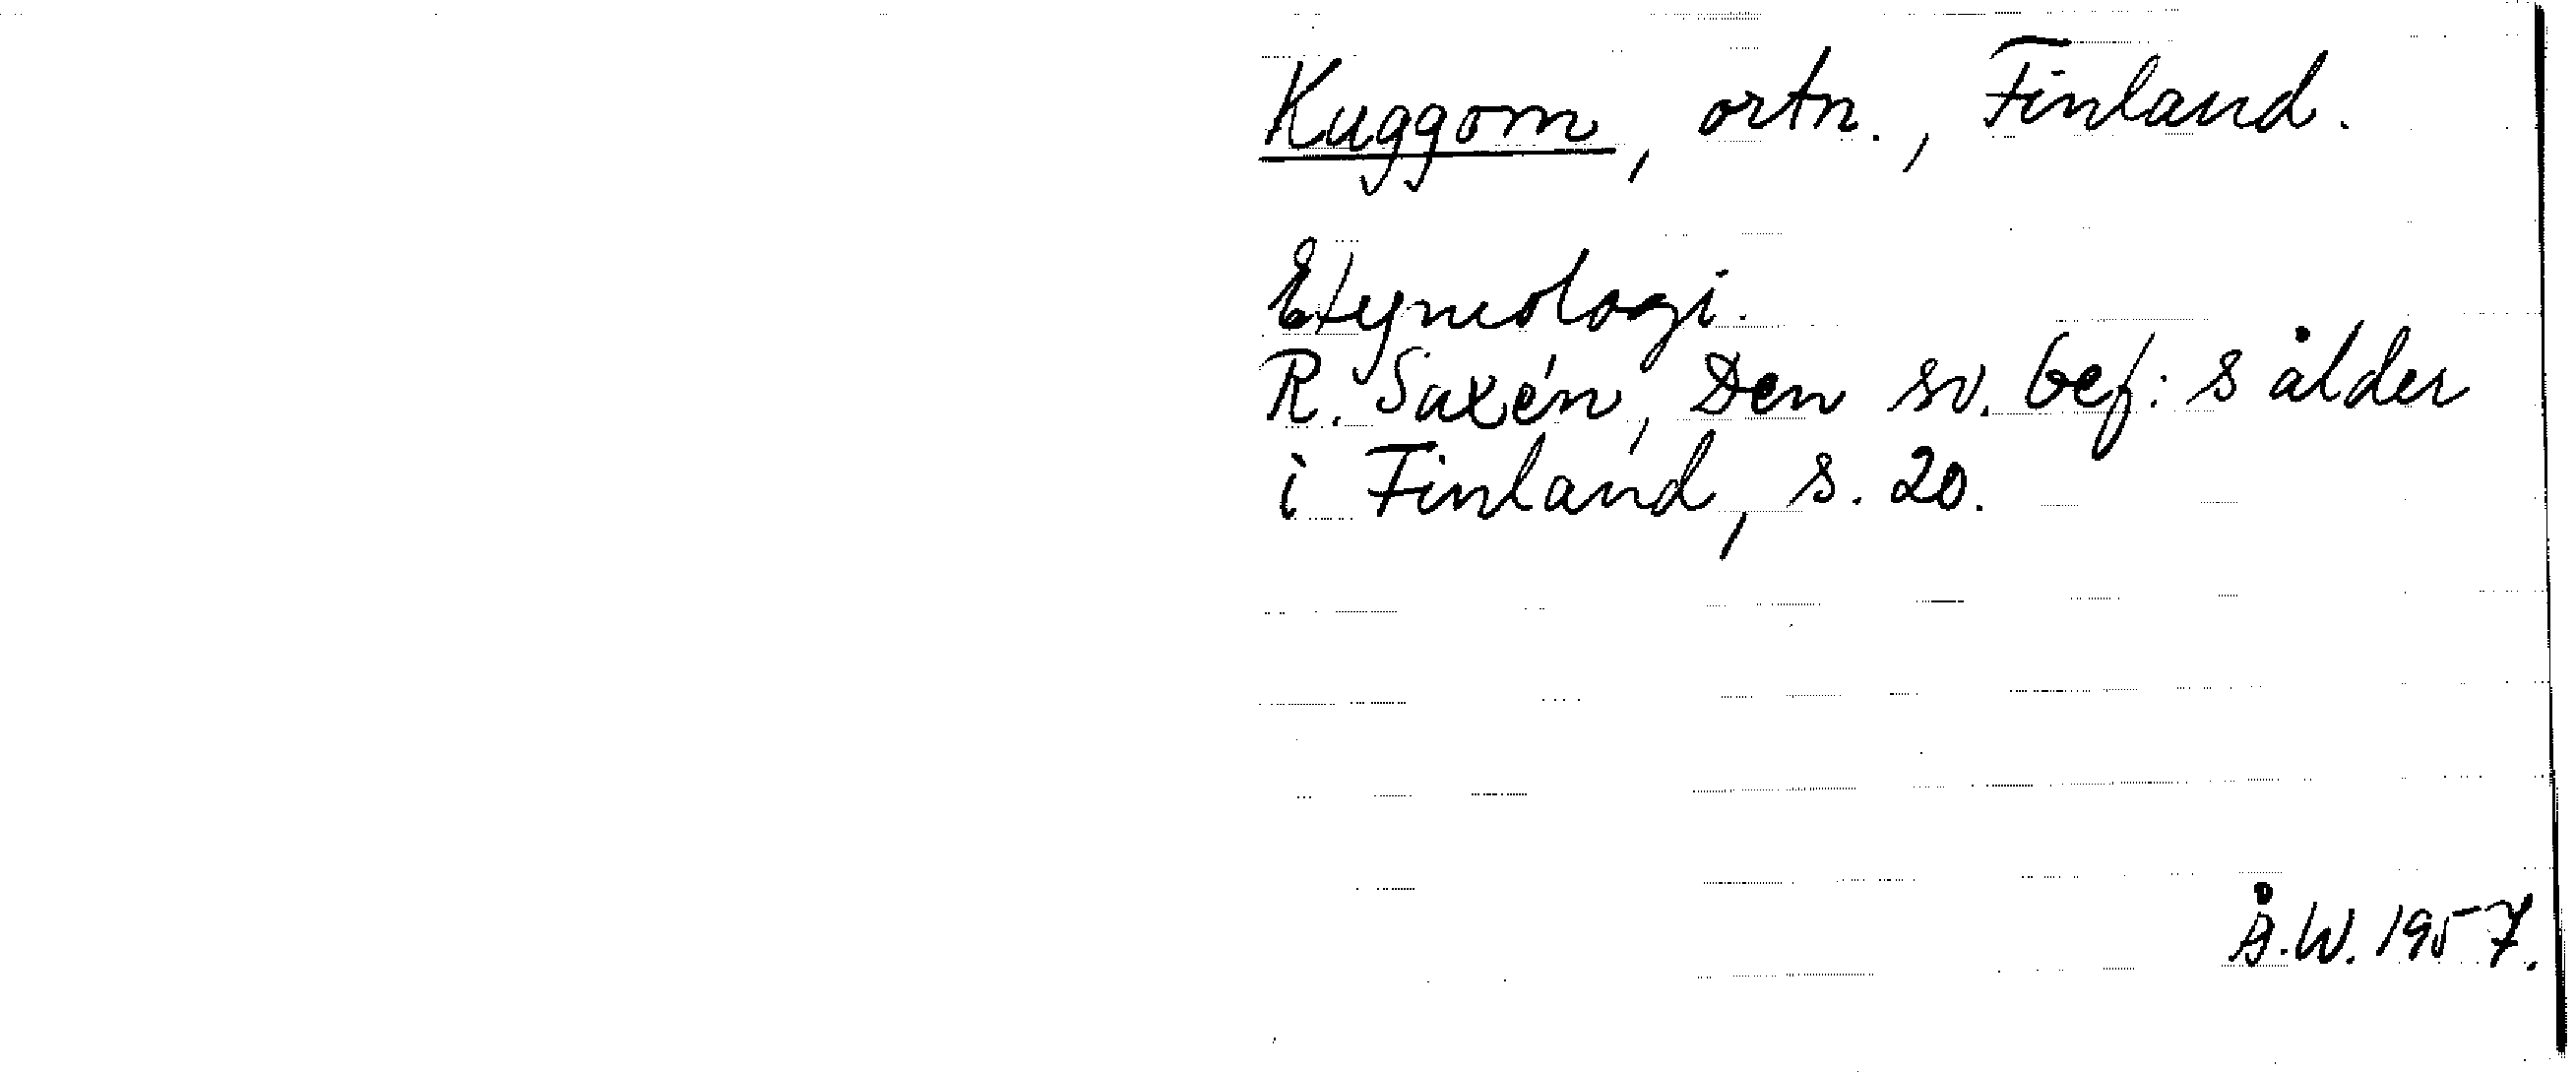 Kuggom, ortn., Finland.
Etymologi.
R. Saxén, Den sv. bef:s ålder
i Finland, s. 20.
Å.W. 1957.